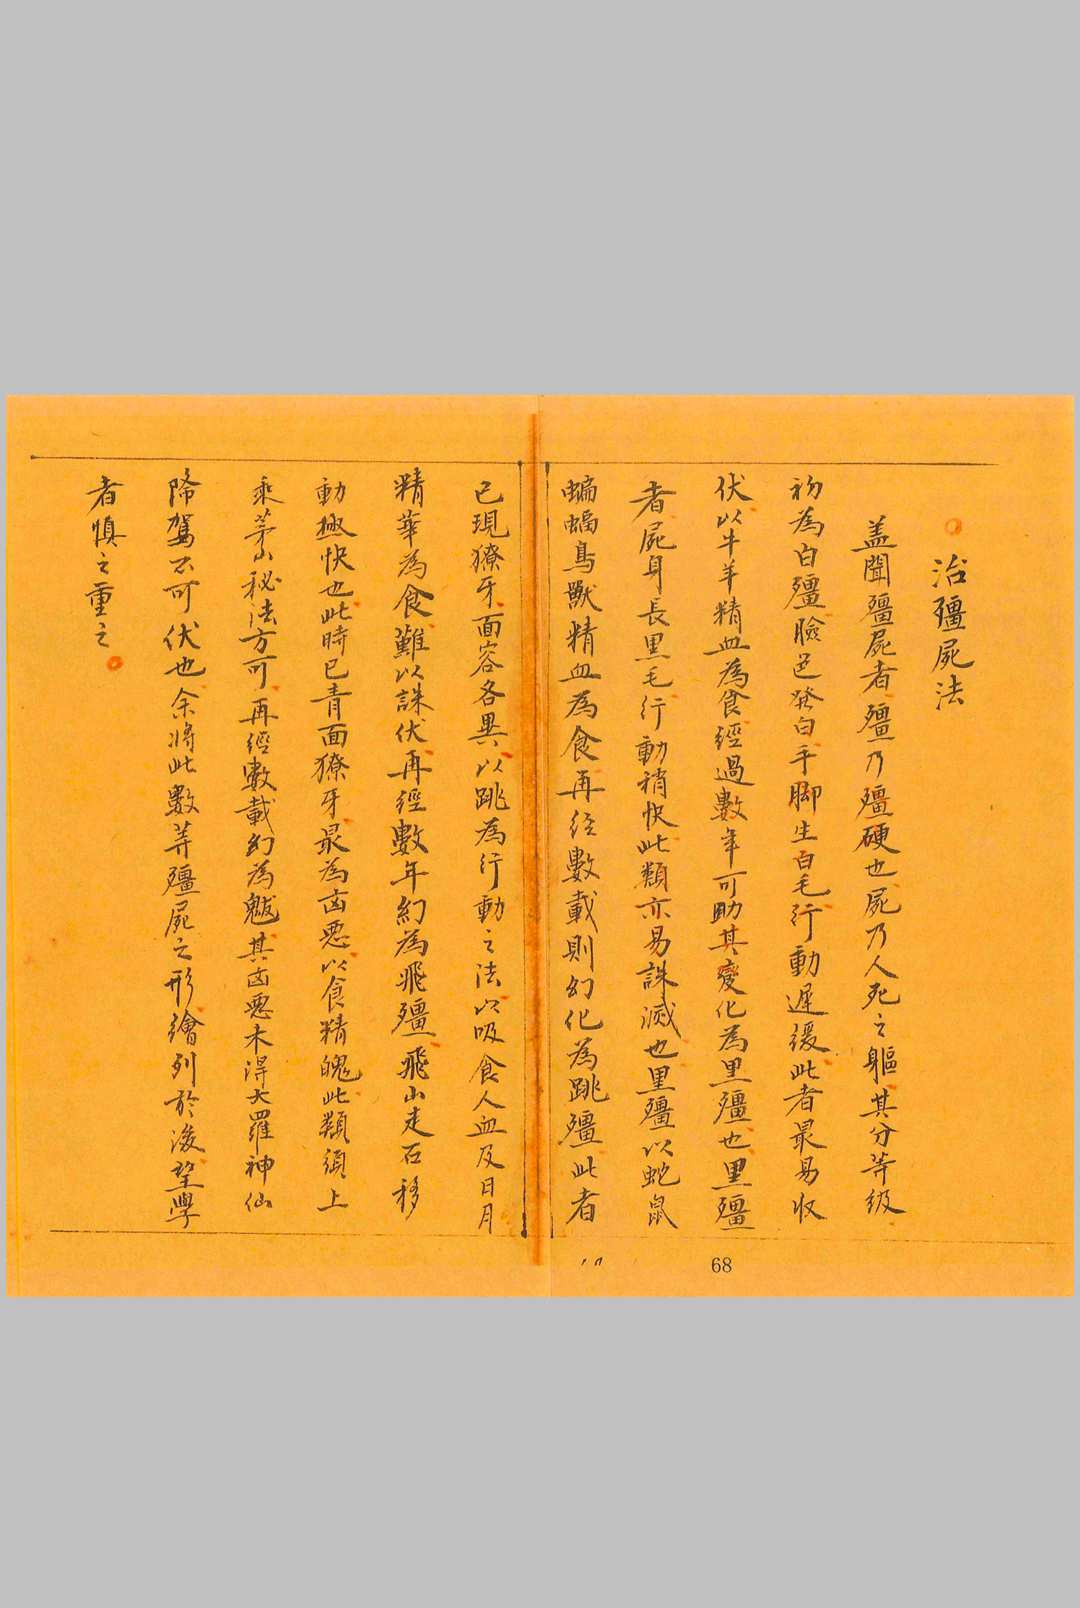 治殭屍法
盖聞殭屍者殭乃殭硬也屍乃人死之軀其分等級
初為白殭臉色發白手脚生白毛行動遲緩此者最易收
伏以牛羊精血為食經過數年可助其變化為黑殭也黑殭
者屍身長黑毛行動稍快此類亦易誅滅也黑殭以蛇鼠
蝙蝠鳥獸精血為食再经數載則幻化為跳殭此者
已現獠牙面容各異以跳為行動之法以吸食人血及日月
精華為食難以誅伏再經數年幻為飛殭飛山走石移
動極快也此時已青面獠牙最為凶恶以食精魄此類須上
乘茅山秘法方可再經數載幻為魃其凶恶未得大羅神仙
降駕不可伏也余將此數等殭屍之形繪列於後望學
者慎之重之
68